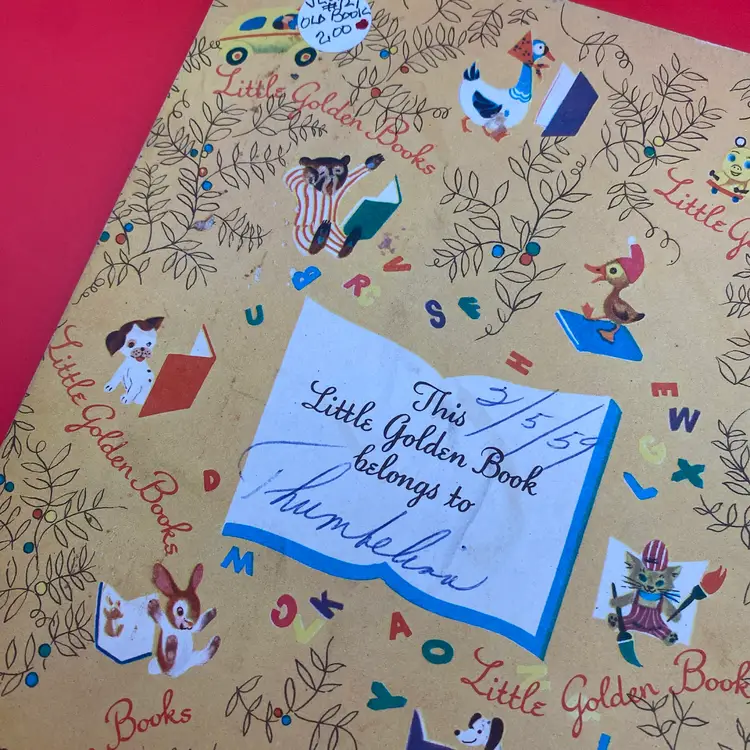 OLD BOOK
2.00
Little Golden Books
Little Golden
This
Little Golden Book
belongs to
3/5/59
Thumbelina
Little Golden Books
U B R C V S F H E W G L X D W C V K A O Y
Little Golden Book
Books